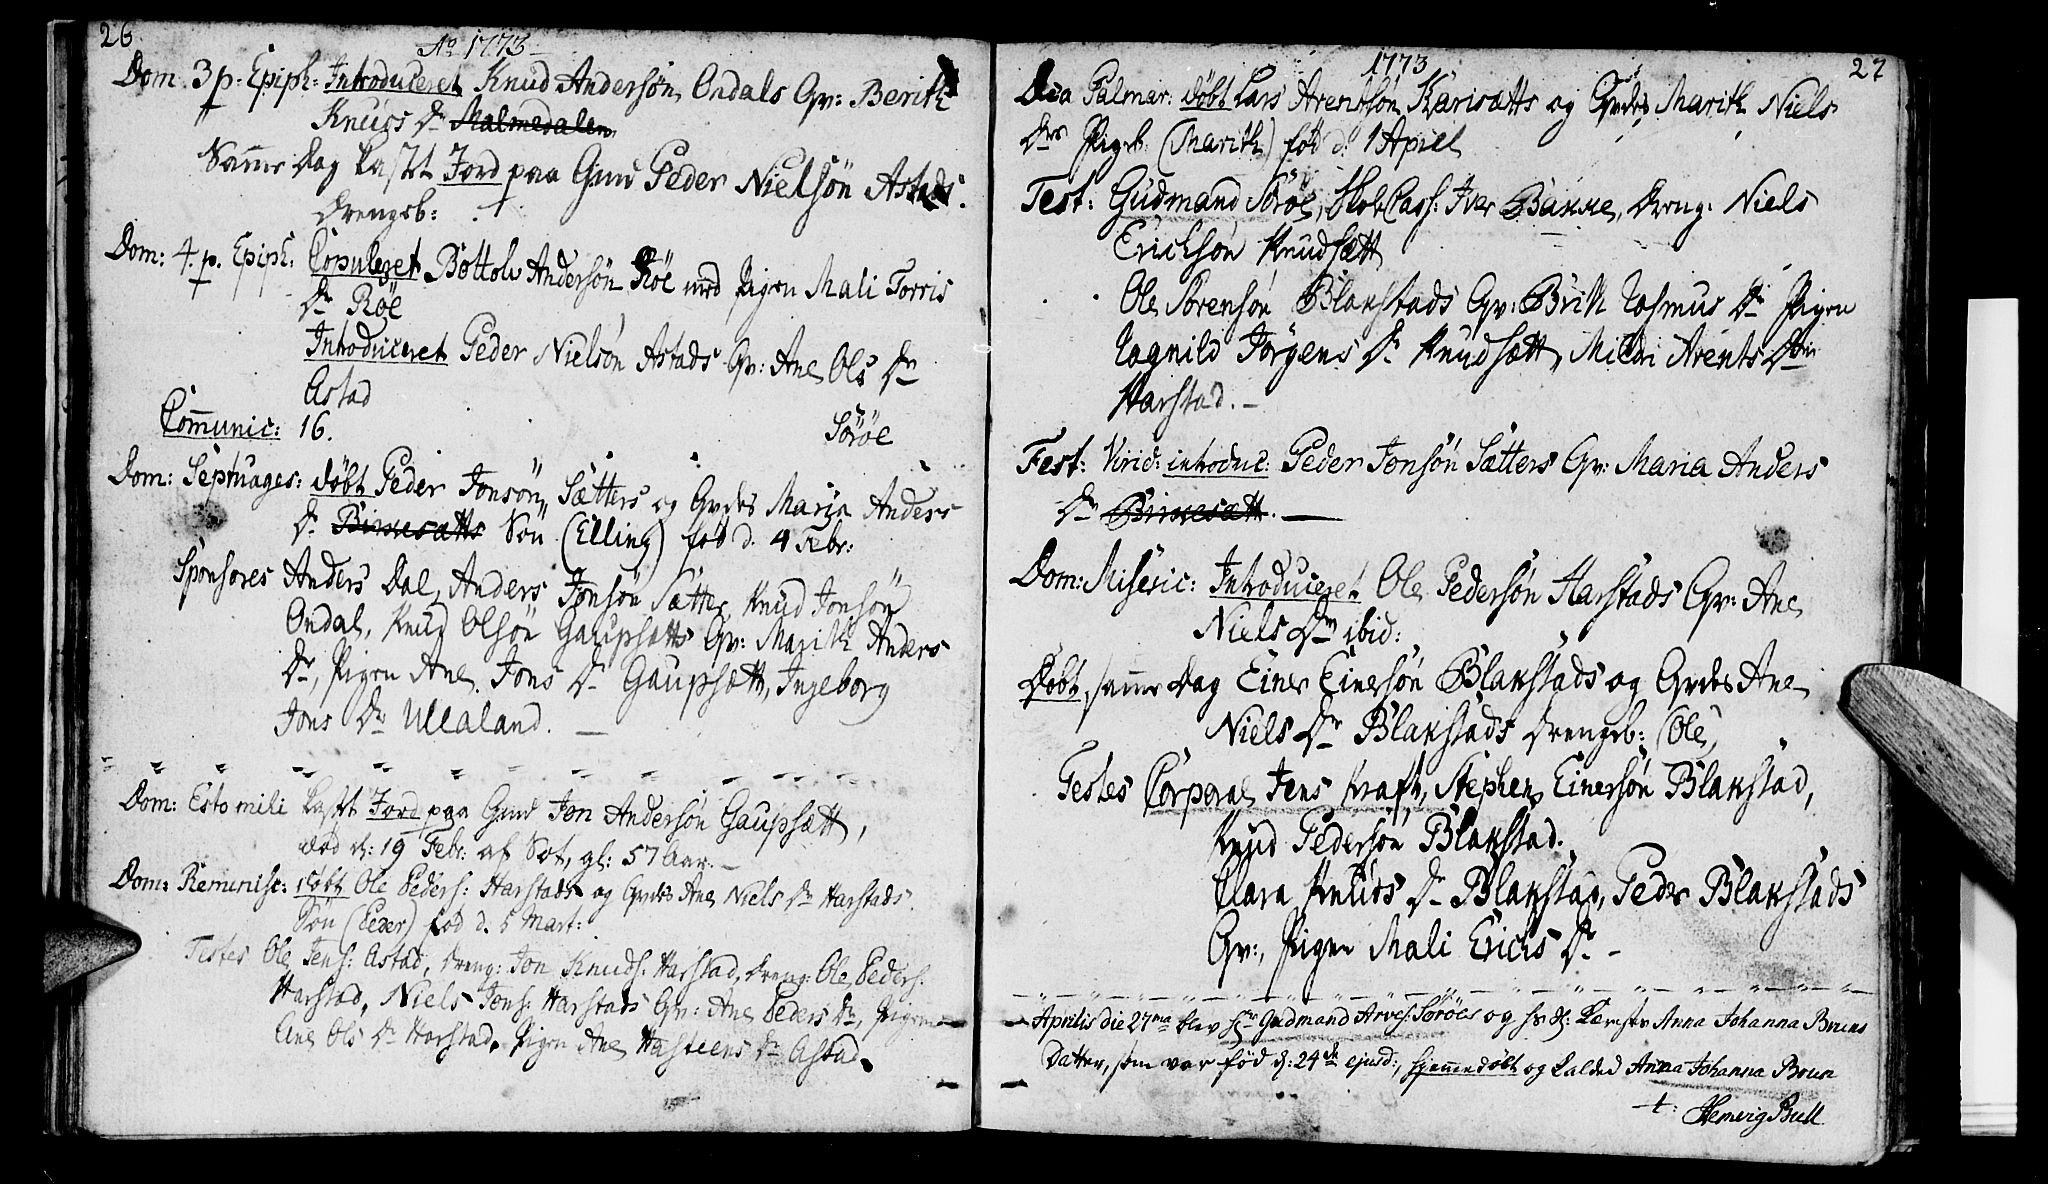 26
Ao 1773
Dom. 3 p. Epiph: Introduceret Knud Andersön Ondals Qv: Berith
Knuds Dr Malmedalen
Samme Dag kastt Jord paa Gmd Peder Nielsön Astads
drengeb:
Dom: 4. p. Epiph: Copuleret Bottolv Andersön Röe med Pigen Mali Torris
Dr Röe
Introduceret Peder Nielsön Astads Qv: Ane Ols Dr
Astad
Com̄unic: 16.
Söröe
Dom: Septuages: döbt Peder Jonsön Sætters og Qvdes Maria Anders
Dr Birkesætts Sön (Elling) fød d. 4 Febr:
Sponsores Anders Dal, Anders Jonsön Sætter, Knud Jonsön
Ondal, Knud Olsön Gaupsætts Qv: Marith Anders
Dr, Pigen Ane Jons Dr Gaupsætt, Ingeborg
Jons Dr Ullaland.
Dom: Esto mihi kastt Jord paa Gmd Jon Andersön Gaupsætt,
död d: 19 Febr: af Sot, gl: 57 Aar.
Dom: Reminisc: döbt Ole Peders: Harstads og Qvdes Ane Niels Dr Harstads
Sön (Peder) fød d. 5 Mart:
Testes Ole Jens: Astad, dreng: Jon Knuds: Harstad, dreng: Ole Peders:
Harstad, Niels Jons: Harstads Qv: Ane Peders Dr, Pigen
Ane Ols Dr Harstad, Pigen Ane Hasteens Dr Astad.
1773
27
Dca Palmar: döbt Lars Arentsön Karisætts og Qvdes Marith Niels
Drs Pigeb. (Marith) fød d. 1 April
Test: Gudmand Söröe, Iver Bakke, dreng: Niels
Ericksön Knudsætt
Ole Sörensön Blakstads Qv: Brith Rasmus Dr Pigen
Ragnild Jörgens Dr Knudsætt, Mildri Arents Dr
Harstad.
Fest: Virid: introduc: Peder Jonsön Sætters Qv: Maria Anders
Dr Birkesætt.
Dom: Miseric: Introduceret Ole Pedersön Harstads Qv: Ane
Niels Dr ibid:
Döbt, samme Dag Einer Einersön Blakstads og Qvdes Ane
Niels Dr Blakstads drengeb: (Ole)
Testes Corporal Jens Kraft, Stephen Einersön Blakstad,
Knud Pedersön Blakstad.
Clara Knuds Dr Blakstad, Peder Blakstads
Qv:, Pigen Mali Erichs Dr
Aprilis die 27ma blev Gudmand Söröes og Anna Johanna Bruns
Datter, som var fød d: 24de ejusd:, hjemmedöbt og kalded Anna Johanna Brun
t: Hemmig Bull